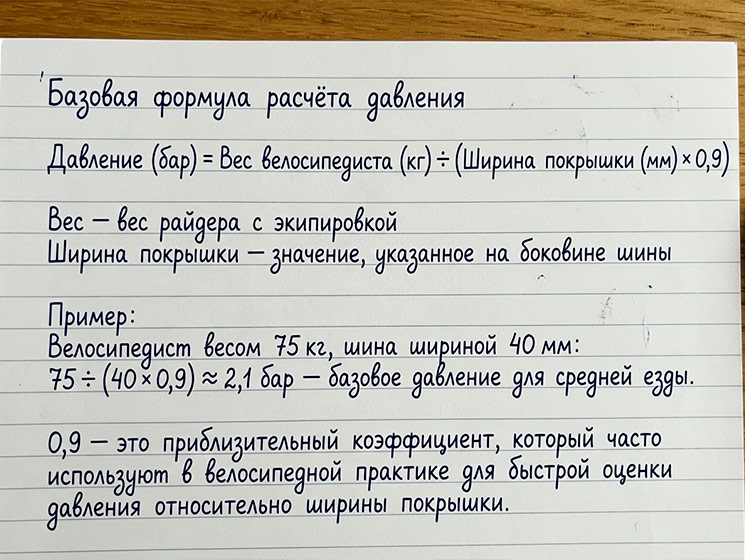 Базовая формула расчёта давления
Давление (бар) = Вес велосипедиста (кг) ÷ (Ширина покрышки (мм) × 0,9)
Вес — вес райдера с экипировкой
Ширина покрышки — значение, указанное на боковине шины
Пример:
Велосипедист весом 75 кг, шина шириной 40 мм:
75 ÷ (40 × 0,9) ≈ 2,1 бар — базовое давление для средней езды.
0,9 — это приблизительный коэффициент, который часто
используют в велосипедной практике для быстрой оценки
давления относительно ширины покрышки.